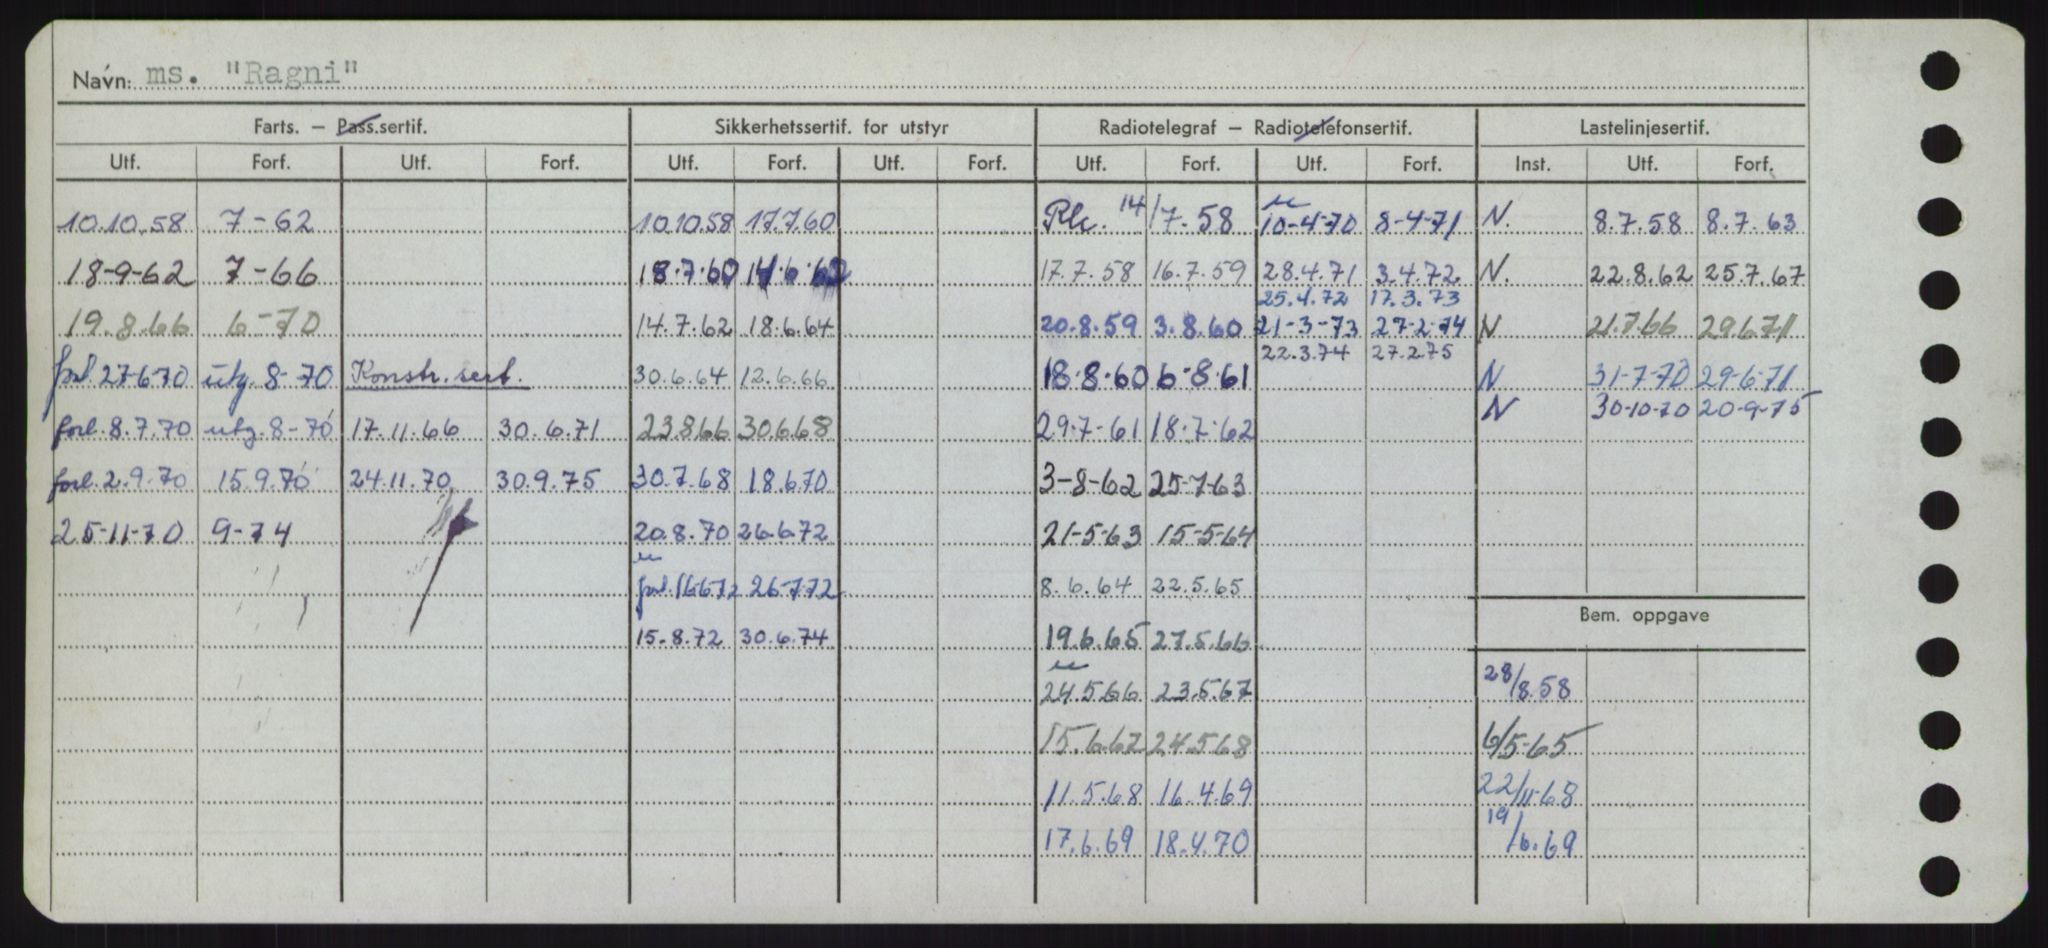 Navn: ms. "Ragni"
Farts. – Pass.sertif. Sikkerhetssertif. for utstyr Radiotelegraf – Radiotelefonsertif. Lastelinjesertif.
Utf. Forf. Utf. Forf. Utf. Forf. Utf. Forf. Utf. Forf. Utf. Forf. Inst. Utf. Forf.
10.10.58 7-62 10.10.58 17.7.60 14/7.58 10-4-70 8-4-71 N. 8.7.58 8.7.63
18-9-62 7-66 18.7.60 14.6.62 17.7.58 16.7.59 28.4.71 3.4.72 N. 22.8.62 25.7.67
25.4.72 17.3.73
19.8.66 6-70 14.7.62 18.6.64 20.8.59 3.8.60 21-3-73 27-2-74 N 21.7.66 29.6.71
22.3.74 27.2.75
forl. 27-6-70 utg. 8-70 Konstr.sert. 30.6.64 12.6.66 18.8.60 6-8-61 N 31-7-70 29-6-71
N 30-10-70 20-9-75
forl. 8.7.70 utg. 8-70 17.11.66 30.6.71 23.8.66 30.6.68 29.7-61 18.7.62
forl. 2.9.70 15.9.70 24.11.70 30.9.75 30.7.68 18.6.70 3-8-62 25-7-63
25-11-70 9-74 20.8.70 26.6.72 21-5-63 15-5-64
forl. 16.6.72 26.7.72 8.6.64 22.5.65
Bem. oppgave
15.8.72 30.6.74 19.6.65 27.5.66
24.5.66 23.5.67 28/8.58
15.6.67 24.5.68 6/5-65
11.5.68 16.4.69 22/11-68
17.6.69 18.4.70 19/6.69